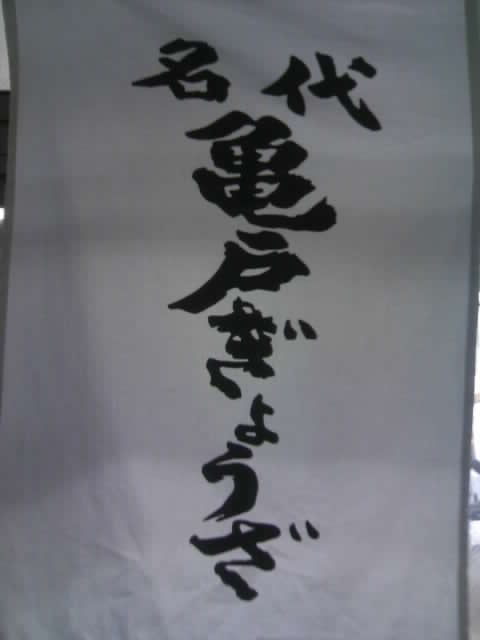 名代
亀戸ぎょうざ